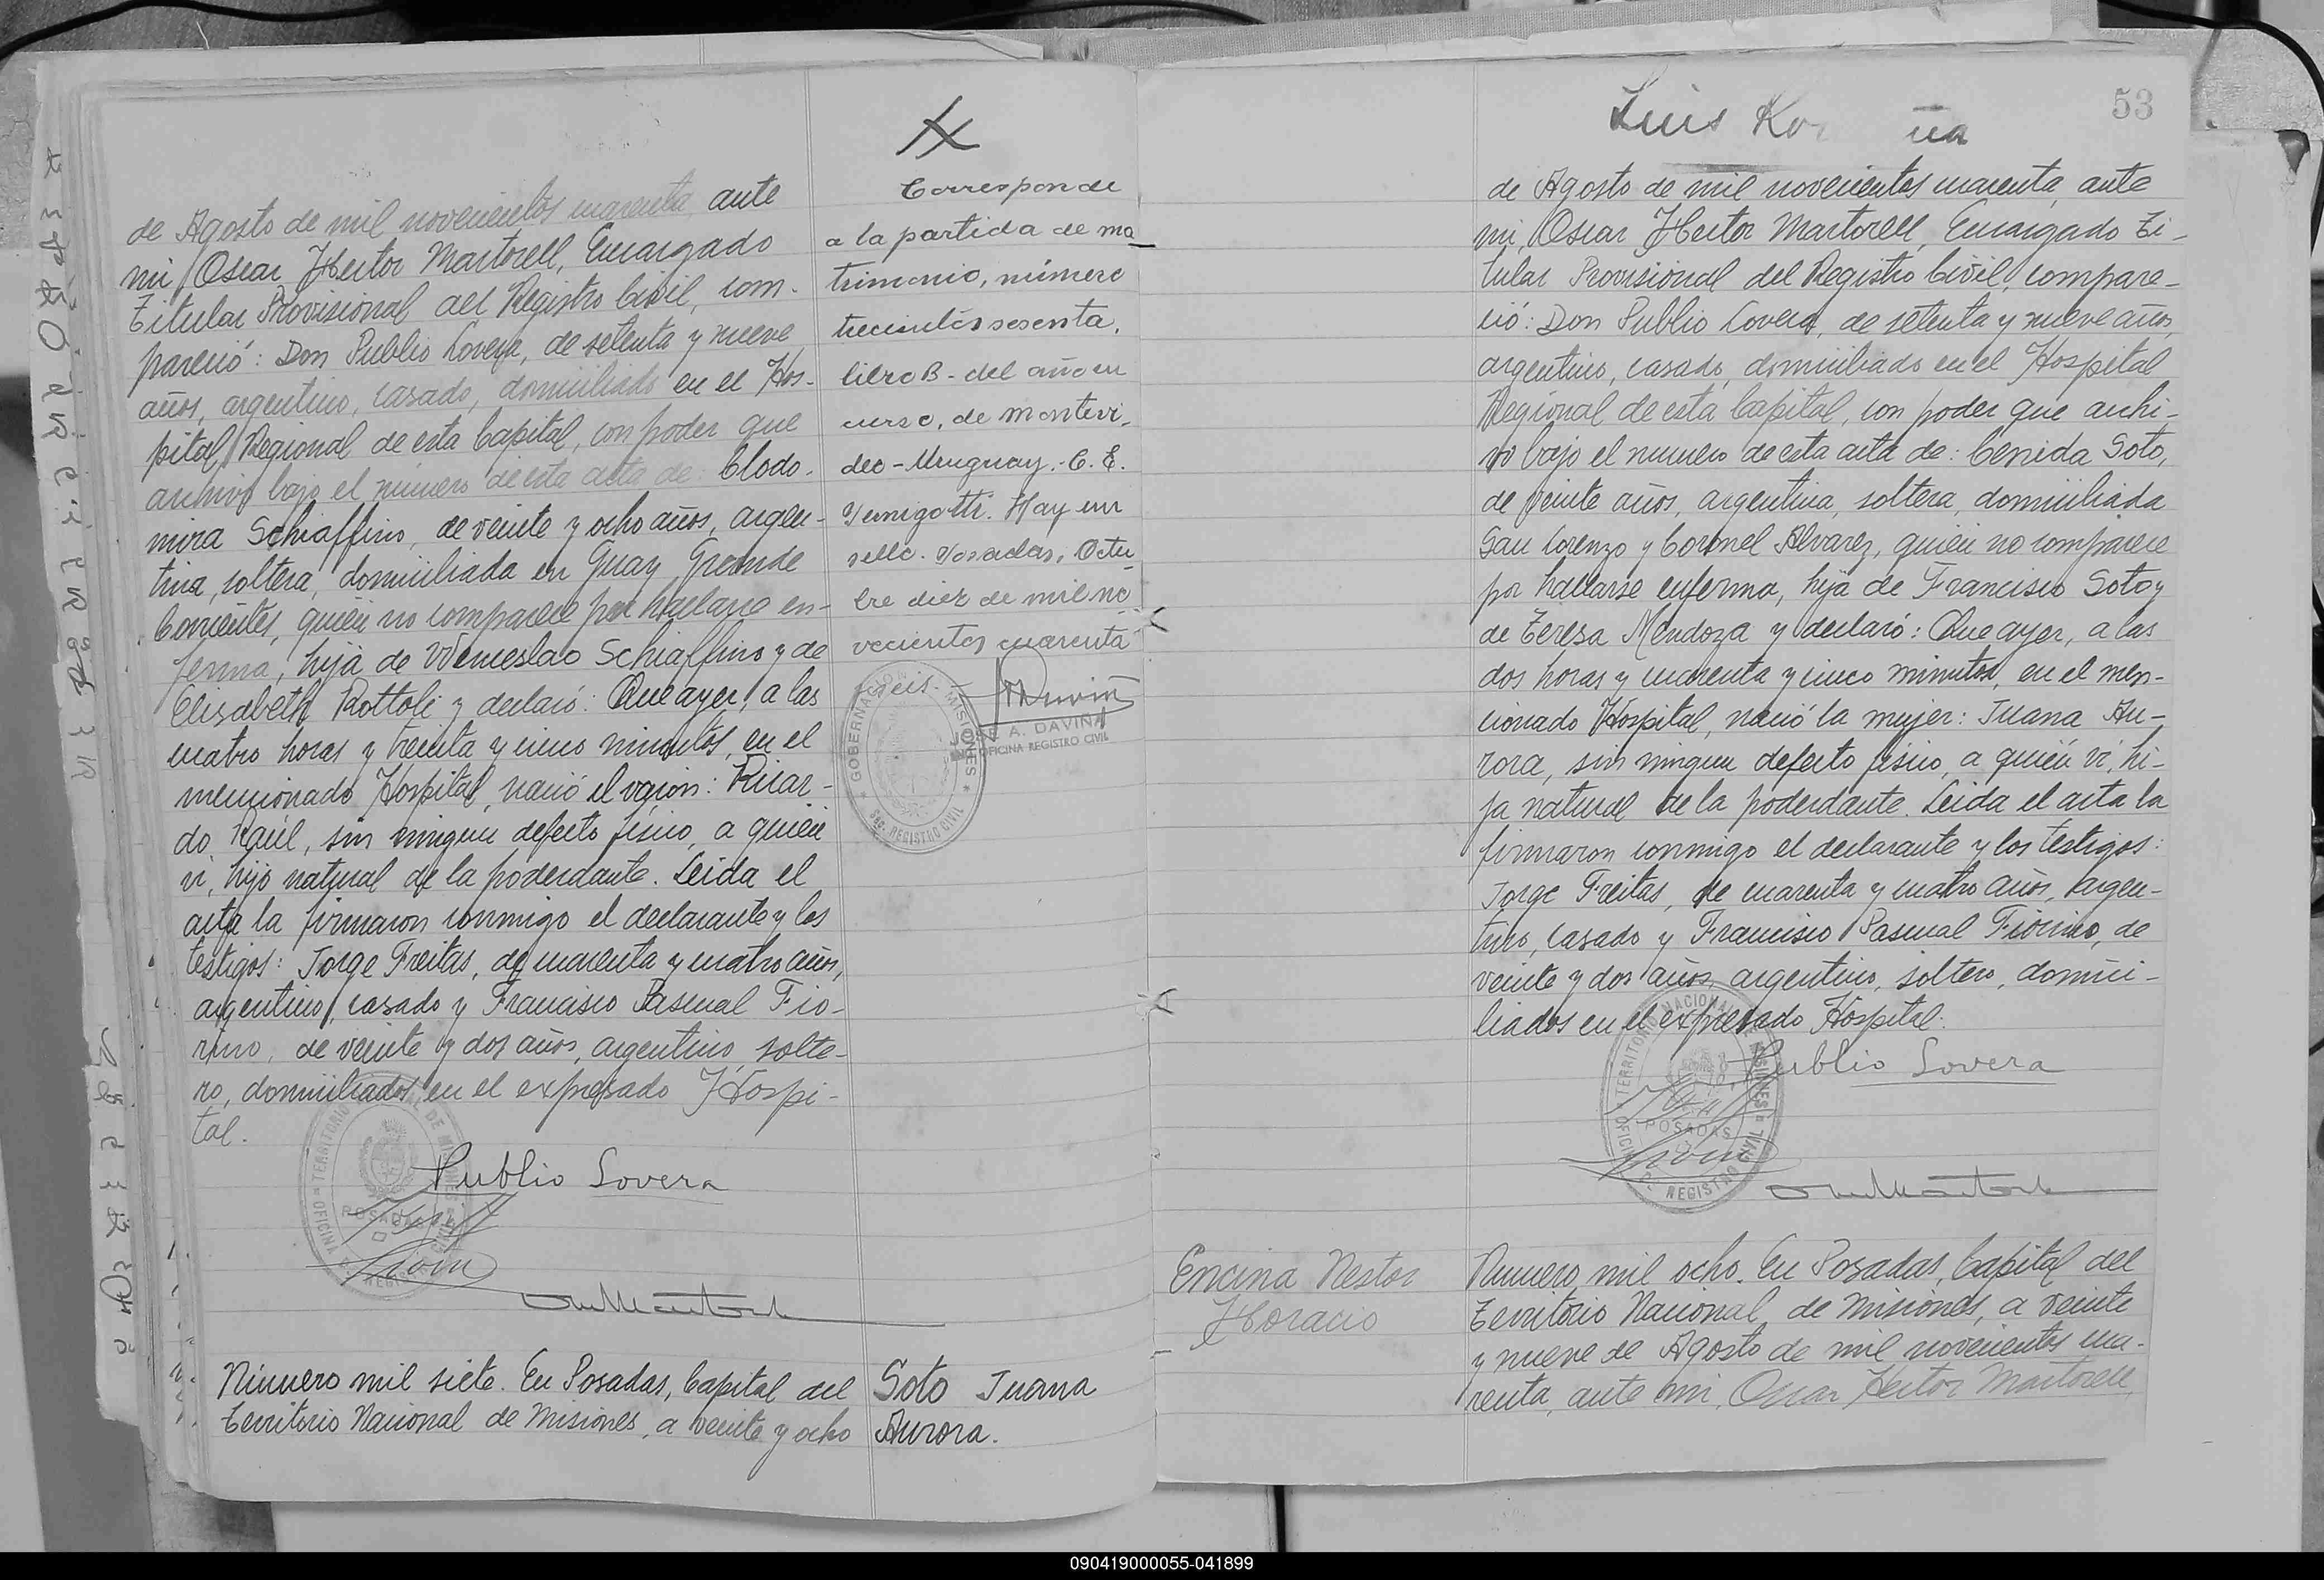 de Agosto de mil novecientos cuarenta, ante
mi, Oscar Hector Martorell, Encargado
Titular Provisional del Registro Civil, com-
pareció: Don Publio Lovera, de setenta y nueve
años, argentino, casado, domiciliado en el Hos-
pital Regional de esta Capital, con poder que
archivo bajo el número de esta acta de: Clodo-
mira Schiaffino, de veinte y ocho años, argen-
tina, soltera, domiciliada en Guay Grande
Corrientes, quien no comparece por hallarse en-
ferma, hija de Wenceslao Schiaffino y de
Elisabeth Rottoli y declaró: Que ayer, a las
cuatro horas y treinta y cinco minutos, en el
mencionado Hospital, nació el varon: Ricar-
do Raúl, sin ningun defecto físico, a quien
vi, hijo natural de la poderdante. Leida el
acta la firmaron conmigo el declarante y los
testigos: Jorge Freitas, de cuarenta y cuatro años,
argentino, casado y Francisco Pascual Fio-
rino, de veinte y dos años, argentino, solte-
ro, domiciliados en el expresado Hospi-
tal.
Publio Lovera
Número mil siete. En Posadas, Capital del
Territorio Nacional de Misiones, a veinte y ocho
Corresponde
a la partida de ma
trimonio, número
trecientos sesenta,
libro B - del año en
curso, de Montevi,
deo - Uruguay. - C. E.
Hay un
sello. Posadas, Octu
bre diez de mil no
vecientos cuarenta
seis.-
JOSE A. DAVIÑA
OFICINA REGISTRO CIVIL
GOBERNACION MISIONES
SEC. REGISTRO CIVIL
Soto Juana
Aurora.
53
Luis
de Agosto de mil novecientos cuarenta, ante
mi, Oscar Hector Martorell, Encargado Ti-
tular Provisional del Registro Civil, compare-
ció: Don Publio Lovera, de setenta y nueve años,
argentino, casado, domiciliado en el Hospital
Regional de esta Capital, con poder que archi-
vo bajo el numero de esta acta de: Cenida Soto,
de veinte años, argentina, soltera, domiciliada
San Lorenzo y Coronel Alvarez, quien no comparece
por hallarse enferma, hija de Francisco Soto y
de Teresa Mendoza y declaró: Que ayer, a las
dos horas y cuarenta y cinco minutos, en el men-
cionado Hospital, nació la mujer: Juana Au-
rora, sin ningun defecto físico, a quien vi, hi-
ja natural de la poderdante. Leida el acta la
firmaron conmigo el declarante y los testigos:
Jorge Freitas, de cuarenta y cuatro años, argen-
tino, casado y Francisco Pascual Fiorino, de
veinte y dos años, argentino, soltero, domici-
liados en el expresado Hospital.
Publio Lovera
POSADAS
Encina Nestor
Horacio
Numero mil ocho. En Posadas, Capital del
Territorio Nacional de Misiones, a veinte
y nueve de Agosto de mil novecientos cua-
renta, ante mi, Oscar Hector Martorell,
090419000055-041899